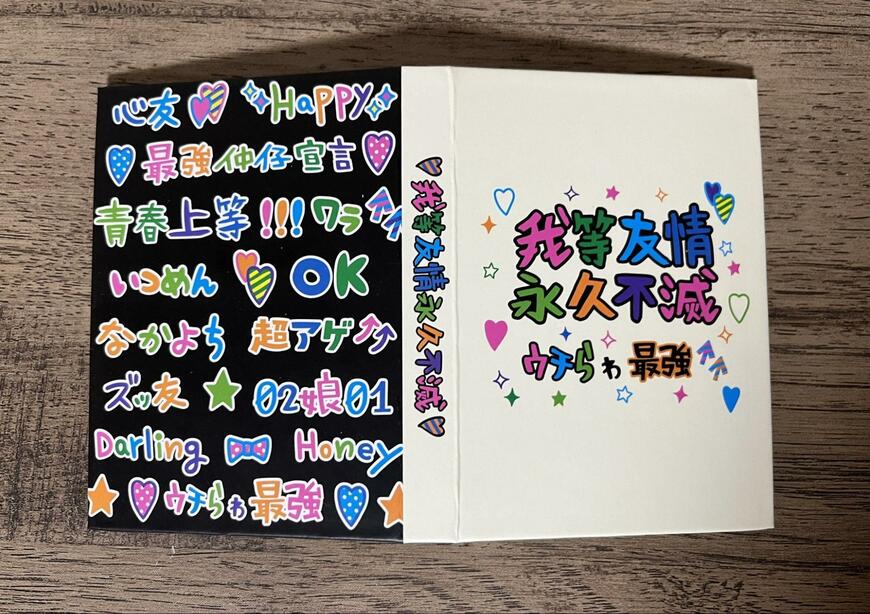 心友 HaPPY
最強仲仔宣言
青春上等!!!ワラ
いつめん OK
なかよち 超アゲ⤴⤴
ズッ友 ★ 02娘01
Darling Honey
ウチらゎ最強
我等友情永久不滅
我等友情
永久不滅
ウチらゎ最強